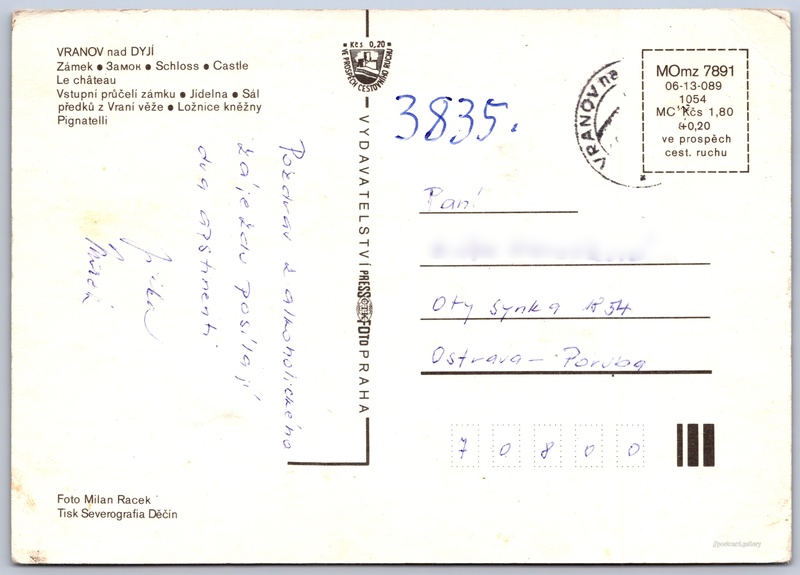 VRANOV nad DYJÍ
Zámek ● Замок ● Schloss ● Castle
Le château
Vstupní průčelí zámku ● Jídelna ● Sál
předků z Vraní věže ● Ložnice kněžny
Pignatelli
Kčs 0,20
VE PROSPĚCH CESTOVNÍHO RUCHU
3835.
VRANOV na
MOmz 7891
06-13-089
1054
MC Kčs 1,80
+0,20
ve prospěch
cest. ruchu
Pozdrav z alkoholického
zájezdu posílají
dva abstinenti
Jirka
VYDAVATELSTVÍ PRESSFOTO PRAHA
ČTK
Paní
Oty Synka 1854
Ostrava - Poruba
70800
Foto Milan Racek
Tisk Severografia Děčín
//postcard.gallery